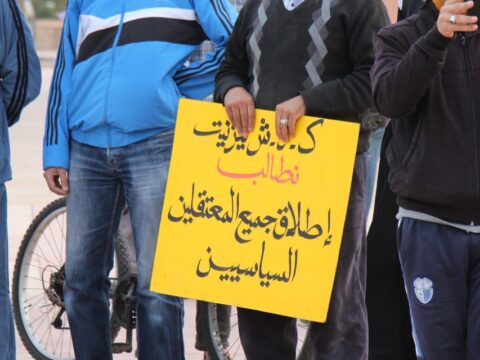 ك.د.ش تيزنيت
نطالب
إطلاق جميع المعتقلين
السياسيين